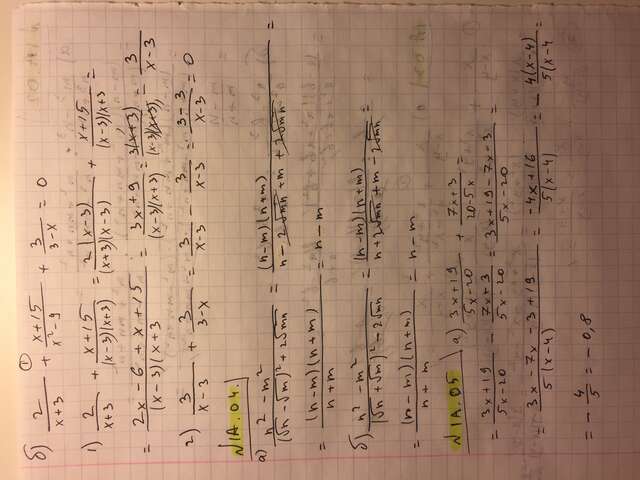 ①
б) 2/(x+3) + (x+15)/(x²-9) + 3/(3-x) = 0
1) 2/(x+3) + (x+15)/((x-3)(x+3)) = 2(x-3)/((x+3)(x-3)) + (x+15)/((x-3)(x+3 =
= (2x-6+x+15)/((x-3)(x+3 = (3x+9)/((x-3)(x+3)) = 3(x+3)/((x-3)(x+3)) = 3/(x-3)
2) 3/(x-3) + 3/(3-x) = 3/(x-3) - 3/(x-3) = (3-3)/(x-3) = 0
√1A.04.
а) (n²-m²)/((√n-√m)²+2√mn) = (n-m)(n+m)/(n-2√mn+m+2√mn) =
= (n-m)(n+m)/(n+m) = n-m
б) (n²-m²)/((√n+√m)²-2√mn) = (n-m)(n+m)/(n+2√mn+m-2√mn) =
= (n-m)(n+m)/(n+m) = n-m
√1A.05 а) (3x+19)/(5x-20) + (7x+3)/(20-5x) =
= (3x+19)/(5x-20) - (7x+3)/(5x-20) = (3x+19-7x-3)/(5x-20) =
= (3x-7x-3+19)/(5(x-4)) = (-4x+16)/(5(x-4)) = - 4(x-4)/(5(x-4 =
= - 4/5 = -0,8